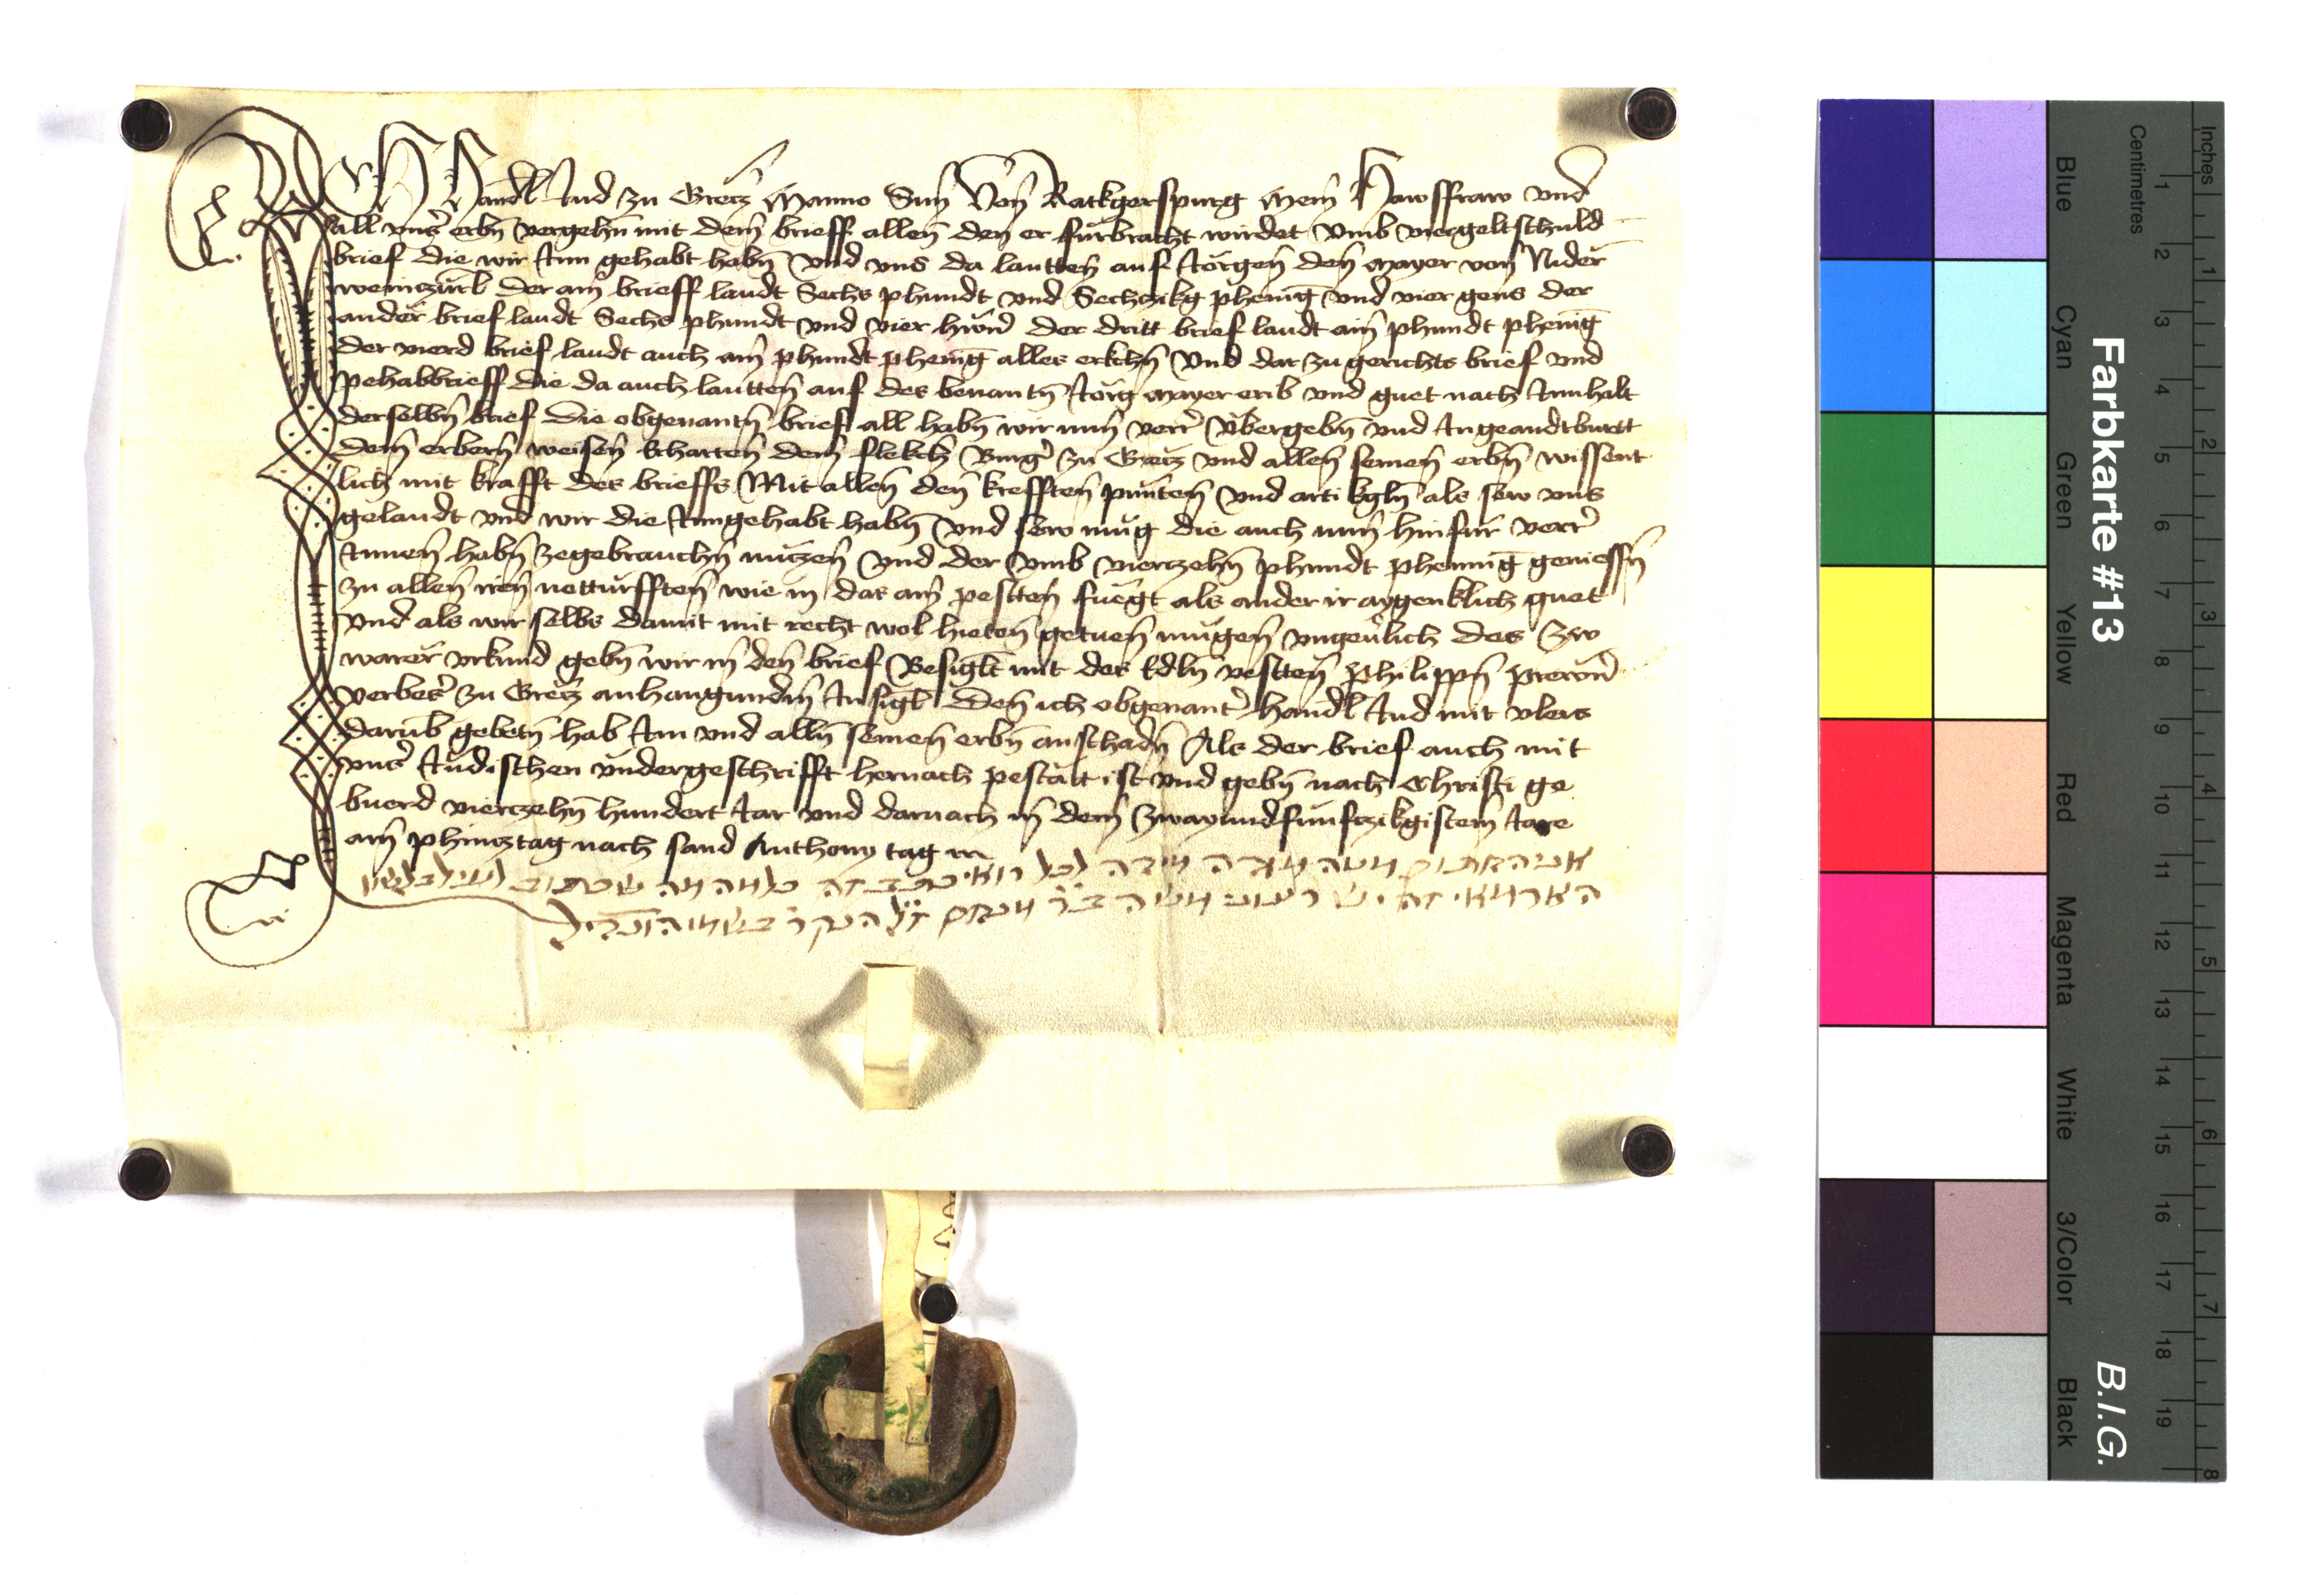 Ich Händl Jud zu Gretz Manno Sun Von Ratkgerspurg Mein Hawsfraw vnd
all vnns erbn vergehn mit dem brieff allen den er furbracht wirdet Vmb vier geltschuld
brief die wir Inn gehabt habn Vnd vns da lautten auf Jorgen den Mayer von Nider
weinczürl Der ain brieff laudt Sechs phundt vnd Sechczikg phenig vnd vier gens der
ander brief laudt Sechs phundt vnd vier hüner der dritt brief laudt ain phundt phenig
der vierd brief laudt auch ain phundt phenig alles Vnd dar zu gerichts brief vnd
pehabbrieff die da auch lautten auf des benantn Jorg Mayer erib vnd guet nach Innhalt
derselbn brief Die obgenantn brief all habn wir nun verr Vbergebn vnd Ingeandtburtt
dem erbern weisen Ekharten dem flekch Burger zu Gretz vnd allen seinen erbn wissent
lich mit krafft des brieffs Mit allen den krefften punten vnd artikgln als sew vns
gelaudt vnd wir die Inngehabt habn vnd sew mug die auch nun hinfur verr
Innen habn zegebrauchn nutzen Vnd der Vmb vierczehn phundt phennig geniessn
zu allen iren notturfften wie in das am pestten fuegt als ander ir aygenklich guet
Vnd als wir selbs damit mit recht wol hieten getuen mugen vngeulich des Zw
warer vrkund gebn wir in den brief Besiglt mit des Edln vestten Philippn
verbeser zu Gretz anhangundm Insigl Den ich obgenanter Handl Jud mit vleis
darumb gebetn hab Im vnd alln seinen erbn anschadn Als der brief auch mit
vnser Judischen vndergeschrifft hernach pestatt ist vnd gebn nach Christi ge
buerd vierczehn hundert Jar vnd darnach in dem Zwayundfunfczikgistem Jare
am phincztag nach sand Anthony tag
אני החתום מטה מודה לכל רואי כתב זה כל מה מה שכתוב לעיל בלשון
משה
Farbkarte #13
B.I.G.
Centimetres
Inches
Blue
Cyan
Green
Yellow
Red
Magenta
White
3/Color
Black
1 2 3 4 5 6 7 8 9 10 11 12 13 14 15 16 17 18 19
1 2 3 4 5 6 7 8